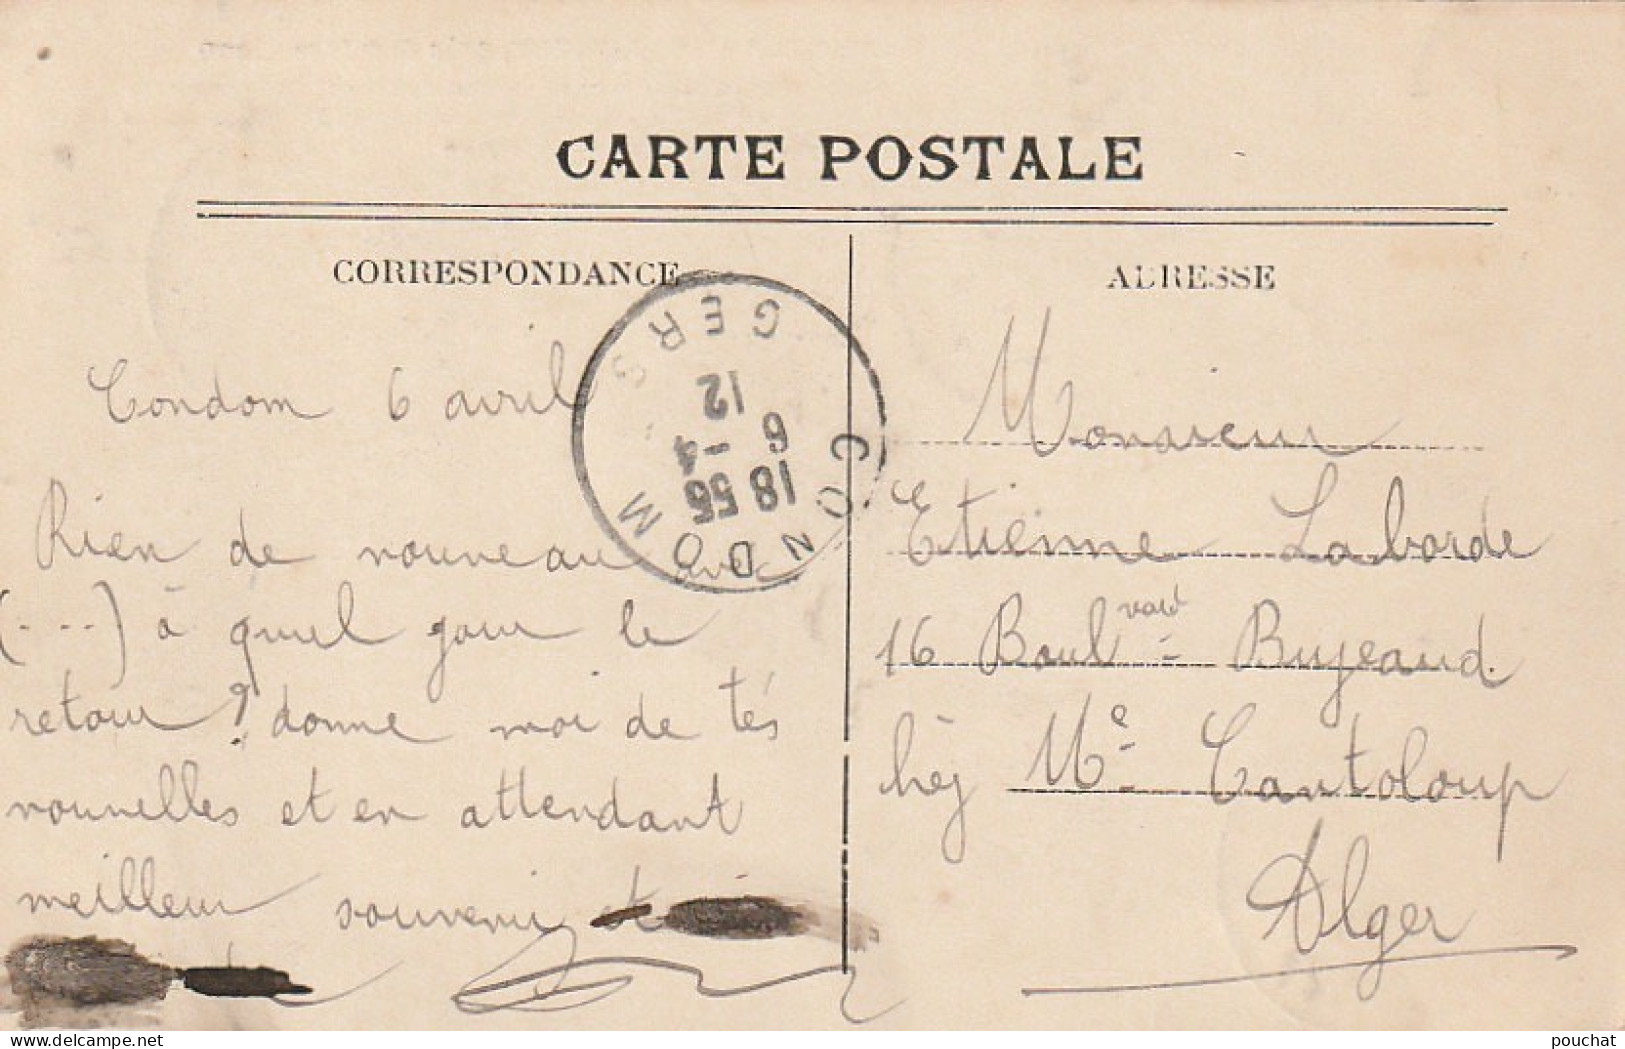 CARTE POSTALE
CORRESPONDANCE
Condom 6 avril
Rien de nouveau avec
(....) à quel jour le
retour ? donne moi de tés
nouvelles et en attendant
meilleur souvenir et
CONDOM
GERS
18 55
6 -4
12
ADRESSE
Monsieur
Etienne Laborde
16 Boulvard Bujeaud
hèj Me Cantoloup
Alger
pouchat